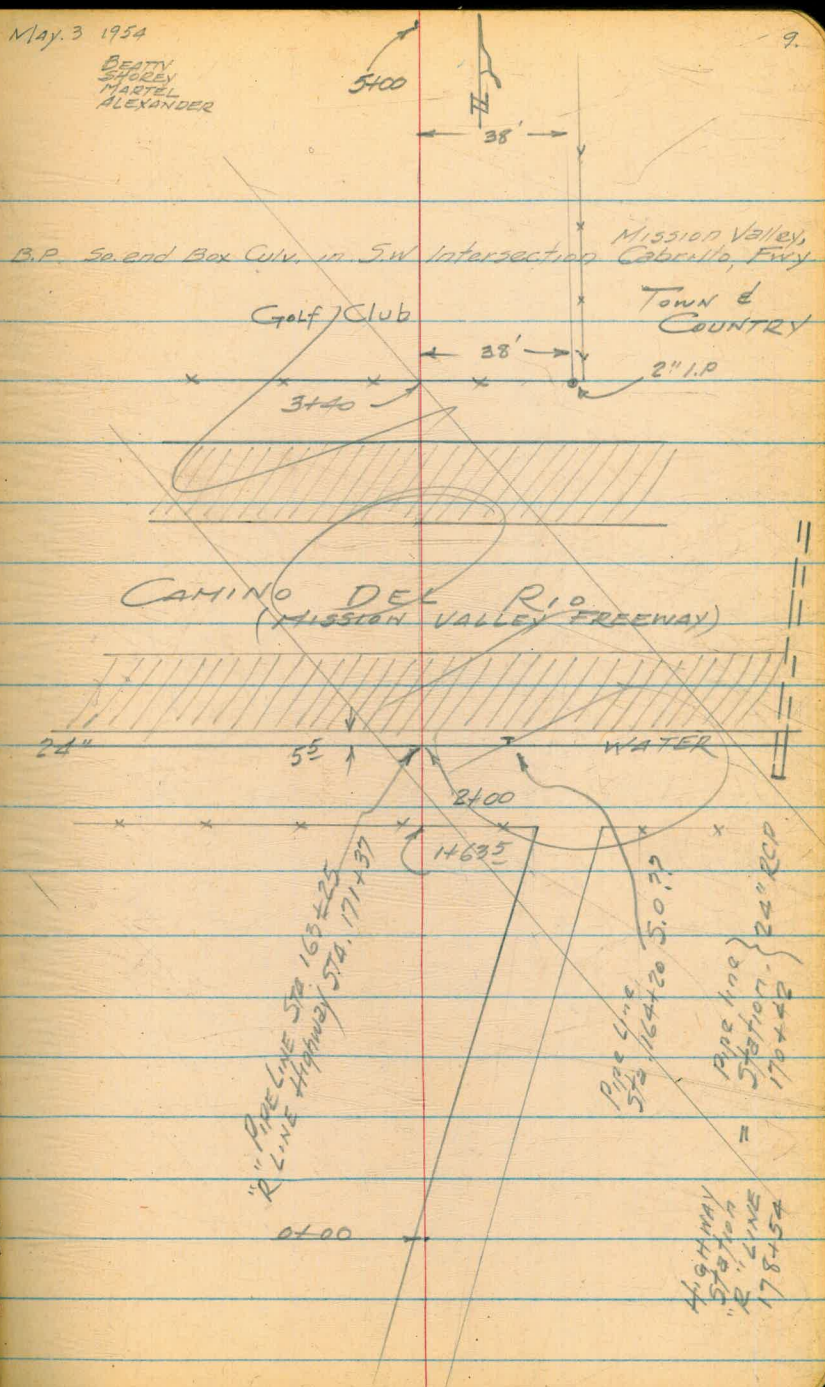 May. 3 1954
9.
BEATTY
SHOREY
MARTEL
ALEXANDER
5+00
38'
B.P. So. end Box Culv. in S.W Intersection Mission Valley,
Cabrillo, Fwy
Golf Club
TOWN &
COUNTRY
38'
2" I.P
3+40
CAMINO DEL RIO
(MISSION VALLEY FREEWAY)
24"
5 5
WATER
2+00
1+63 5
PIPE LINE STA 163+25
"R" LINE Highway STA. 171+37
Pipe Line
Sta 164+20 S.O ??
Pipe line
Station
170+42
24" RCP
=
HIGHWAY
Station
"R" LINE
178+54
0+00